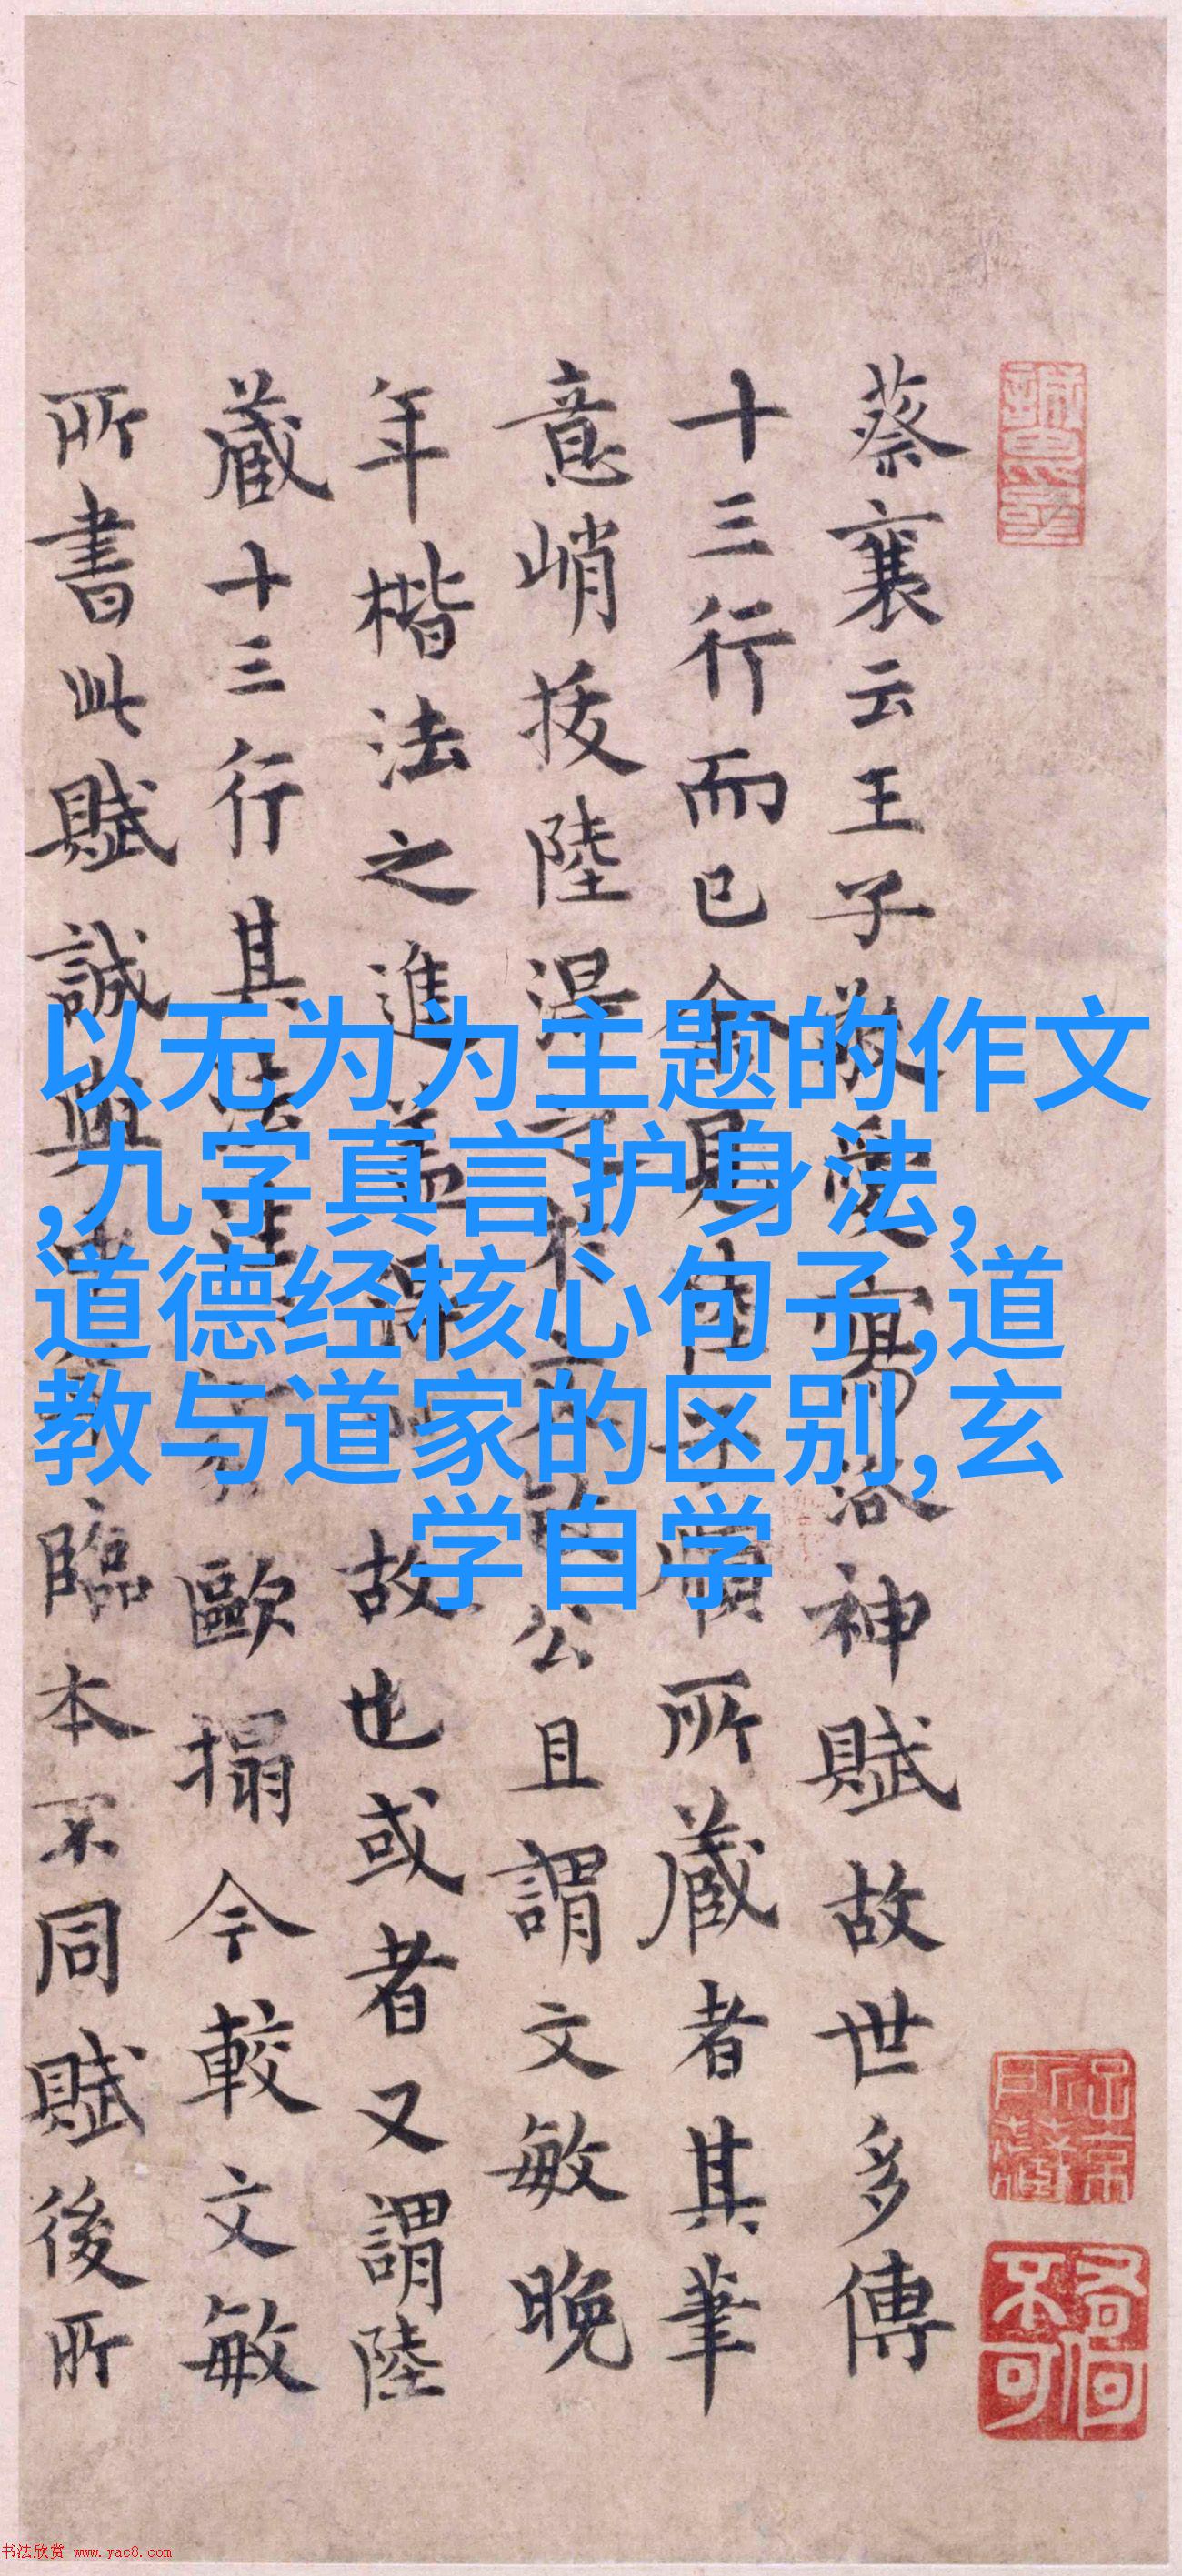 蔡襄云王子敬愛寫洛神賦故世多傳
十三行而已見陸所藏者其筆
意峭拔陸公且謂文敏晚
年楷法之進蓋得故也或者又謂陸
藏十三行其歐搨今較文敏
所書此賦誠與臨本不同賦後所
以无为为主题的作文
,九字真言护身法,
道德经核心句子,道
教与道家的区别,玄
学自学
书法欣赏 www.yac8.com